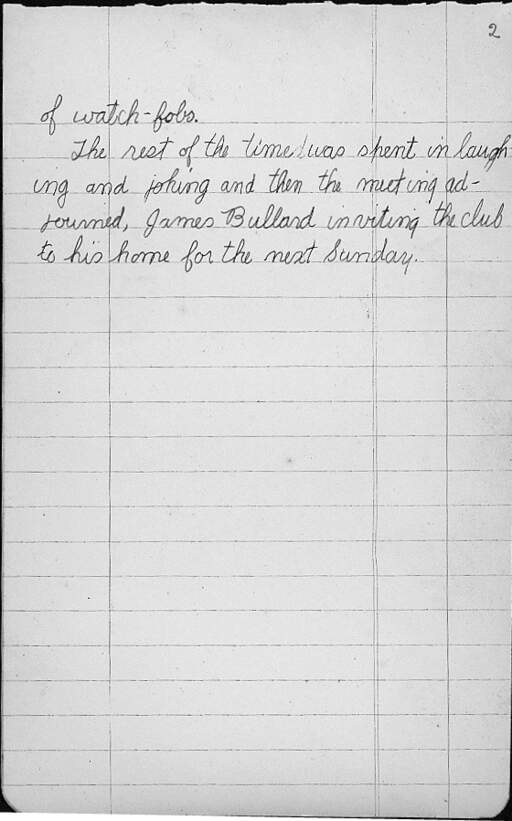 2
of watch-fobs.
The rest of the time was spent in laugh-
ing and joking and then the meeting ad-
journed, James Bullard inviting the club
to his home for the next Sunday.